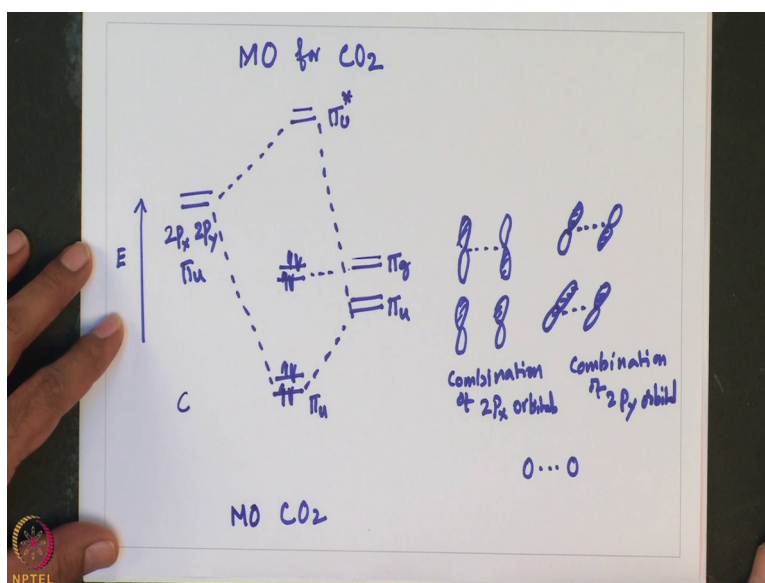 MO for CO2
πu*
2Px 2Py
πu
E
πg
πu
πu
C
Combination
of 2Px orbitals
Combination
of 2Py orbital
O...O
MO CO2
NPTEL